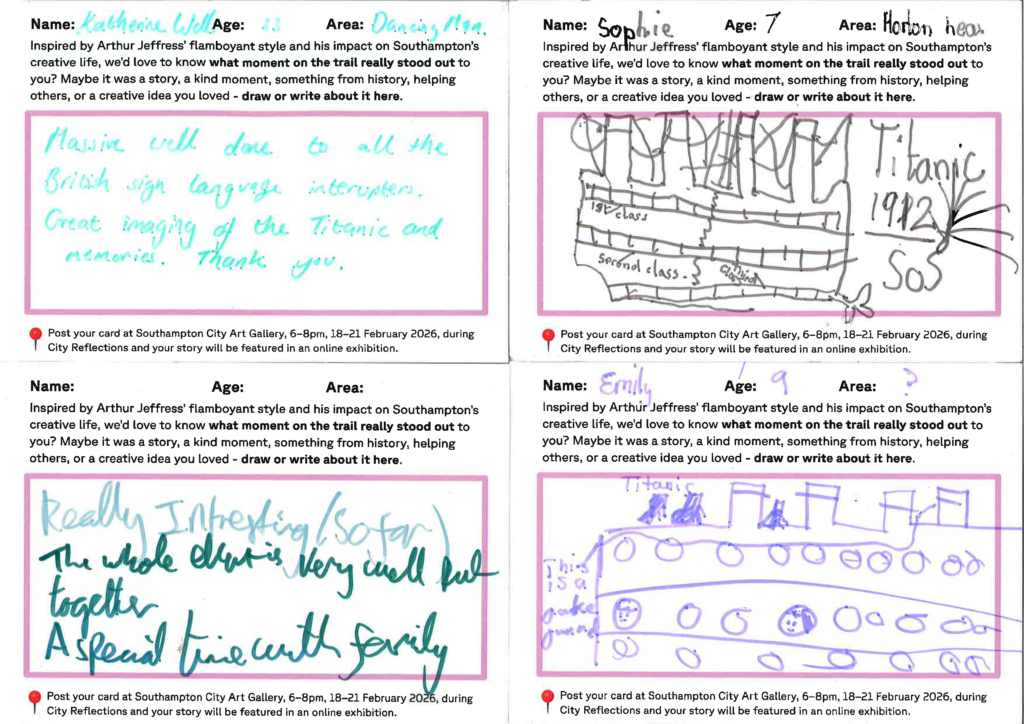 Name: Katherine Woll Age: 33 Area: Dancing Man.
Inspired by Arthur Jeffress' flamboyant style and his impact on Southampton's
creative life, we'd love to know what moment on the trail really stood out to
you? Maybe it was a story, a kind moment, something from history, helping
others, or a creative idea you loved - draw or write about it here.
Massive well done to all the
British sign language interupters.
Great imaging of the Titanic and
memories. Thank you.
Post your card at Southampton City Art Gallery, 6–8pm, 18–21 February 2026, during
City Reflections and your story will be featured in an online exhibition.
Name: Sophie Age: 7 Area: Horton hea
Inspired by Arthur Jeffress' flamboyant style and his impact on Southampton's
creative life, we'd love to know what moment on the trail really stood out to
you? Maybe it was a story, a kind moment, something from history, helping
others, or a creative idea you loved - draw or write about it here.
Titanic
1912
SOS
1st class
Second class.
Third class
Post your card at Southampton City Art Gallery, 6–8pm, 18–21 February 2026, during
City Reflections and your story will be featured in an online exhibition.
Name: Age: Area:
Inspired by Arthur Jeffress' flamboyant style and his impact on Southampton's
creative life, we'd love to know what moment on the trail really stood out to
you? Maybe it was a story, a kind moment, something from history, helping
others, or a creative idea you loved - draw or write about it here.
Really Intresting (so far)
The whole event is very well put
together
A special time with family
Post your card at Southampton City Art Gallery, 6–8pm, 18–21 February 2026, during
City Reflections and your story will be featured in an online exhibition.
Name: Emily Age: 9 Area: ?
Inspired by Arthur Jeffress' flamboyant style and his impact on Southampton's
creative life, we'd love to know what moment on the trail really stood out to
you? Maybe it was a story, a kind moment, something from history, helping
others, or a creative idea you loved - draw or write about it here.
Titanic
This
is a
Post your card at Southampton City Art Gallery, 6–8pm, 18–21 February 2026, during
City Reflections and your story will be featured in an online exhibition.